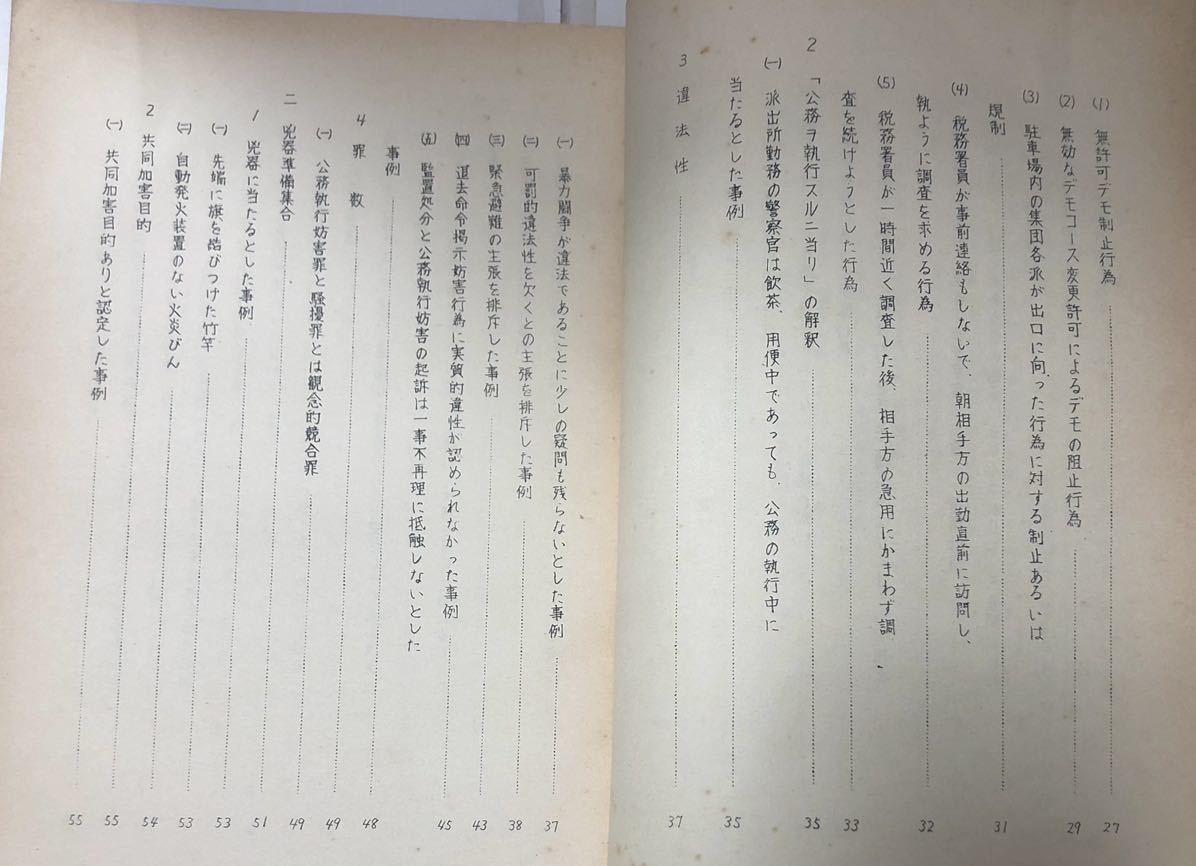 (1) 無許可デモ制止行為 27
(2) 無効なデモコース変更許可によるデモの阻止行為 29
(3) 駐車場内の集団各派が出口に向った行為に対する制止あるいは
規制 31
(4) 税務署員が事前連絡もしないで、朝相手方の出勤直前に訪問し、
執ように調査を求める行為 32
(5) 税務署員が一時間近く調査した後、相手方の急用にかまわず調
査を続けようとした行為 33
2 「公務ヲ執行スルニ当リ」の解釈 35
㈠ 派出所勤務の警察官は飲茶、用便中であっても、公務の執行中に
当たるとした事例 35
3 違法性 37
㈠ 暴力闘争が違法であることに少しの疑問も残らないとした事例 37
㈡ 可罰的違法性を欠くとの主張を排斥した事例 38
㈢ 緊急避難の主張を排斥した事例 43
㈣ 退去命令掲示妨害行為に実質的違性が認められなかった事例 45
㈤ 監置処分と公務執行妨害の起訴は一事不再理に抵触しないとした
事例 48
4 罪数 49
㈠ 公務執行妨害罪と騒擾罪とは観念的競合罪 49
二 兇器準備集合 51
1 兇器に当たるとした事例 53
㈠ 先端に旗を結びつけた竹竿 53
㈡ 自動発火装置のない火炎びん 54
2 共同加害目的 55
㈠ 共同加害目的ありと認定した事例 55